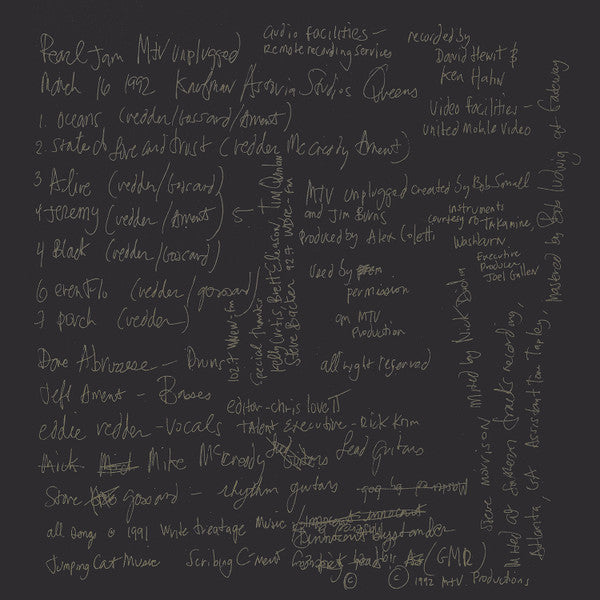 Pearl Jam MTV unplugged
March 16 1992 Kaufman Astoria Studios Queens
1. Oceans (vedder/Gossard/Ament)
2. State of love and trust (vedder McCready Ament)
3 Alive (vedder/Gossard)
4 Jeremy (vedder/Ament)
4 Black (vedder/Gossard)
6 evenflo (vedder/gossard)
7 porch (vedder)
Dave Abruzzese - Drums
Jeff Ament - Basses
eddie vedder - Vocals
Mick. Mike McCready Lead Guitars
Stone Gossard - rhythm guitars
all songs © 1991 write treatage music
Jumping Cat Music Scribing C-ment (GMR)
© © 1992 MTV. Productions
audio facilities -
Remote recording services
recorded by
David Hewitt &
Ken Hahn
Video facilities -
united Mobile Video
MTV unplugged created by Bob Small
and Jim Burns
Produced by Alex Coletti
Instruments
courtesy of takamine,
Washburn.
Executive
Producer
Joel Gallen
used by
permission
an MTV
Production
all right reserved
editor - chris love II
Talent Executive - Rick Krim
102.7 WNEW-fm
Special thanks
Kelly Curtis, Brett Eliason, Tim Quinlan
Steve Backer 92.7 WDRE-fm
Mixed by Nick Didia
Steve morrison
Mixed at Southern tracks recording,
Atlanta, GA Assistant Tan Tapley,
Mastered by Bob Ludwig at Gateway